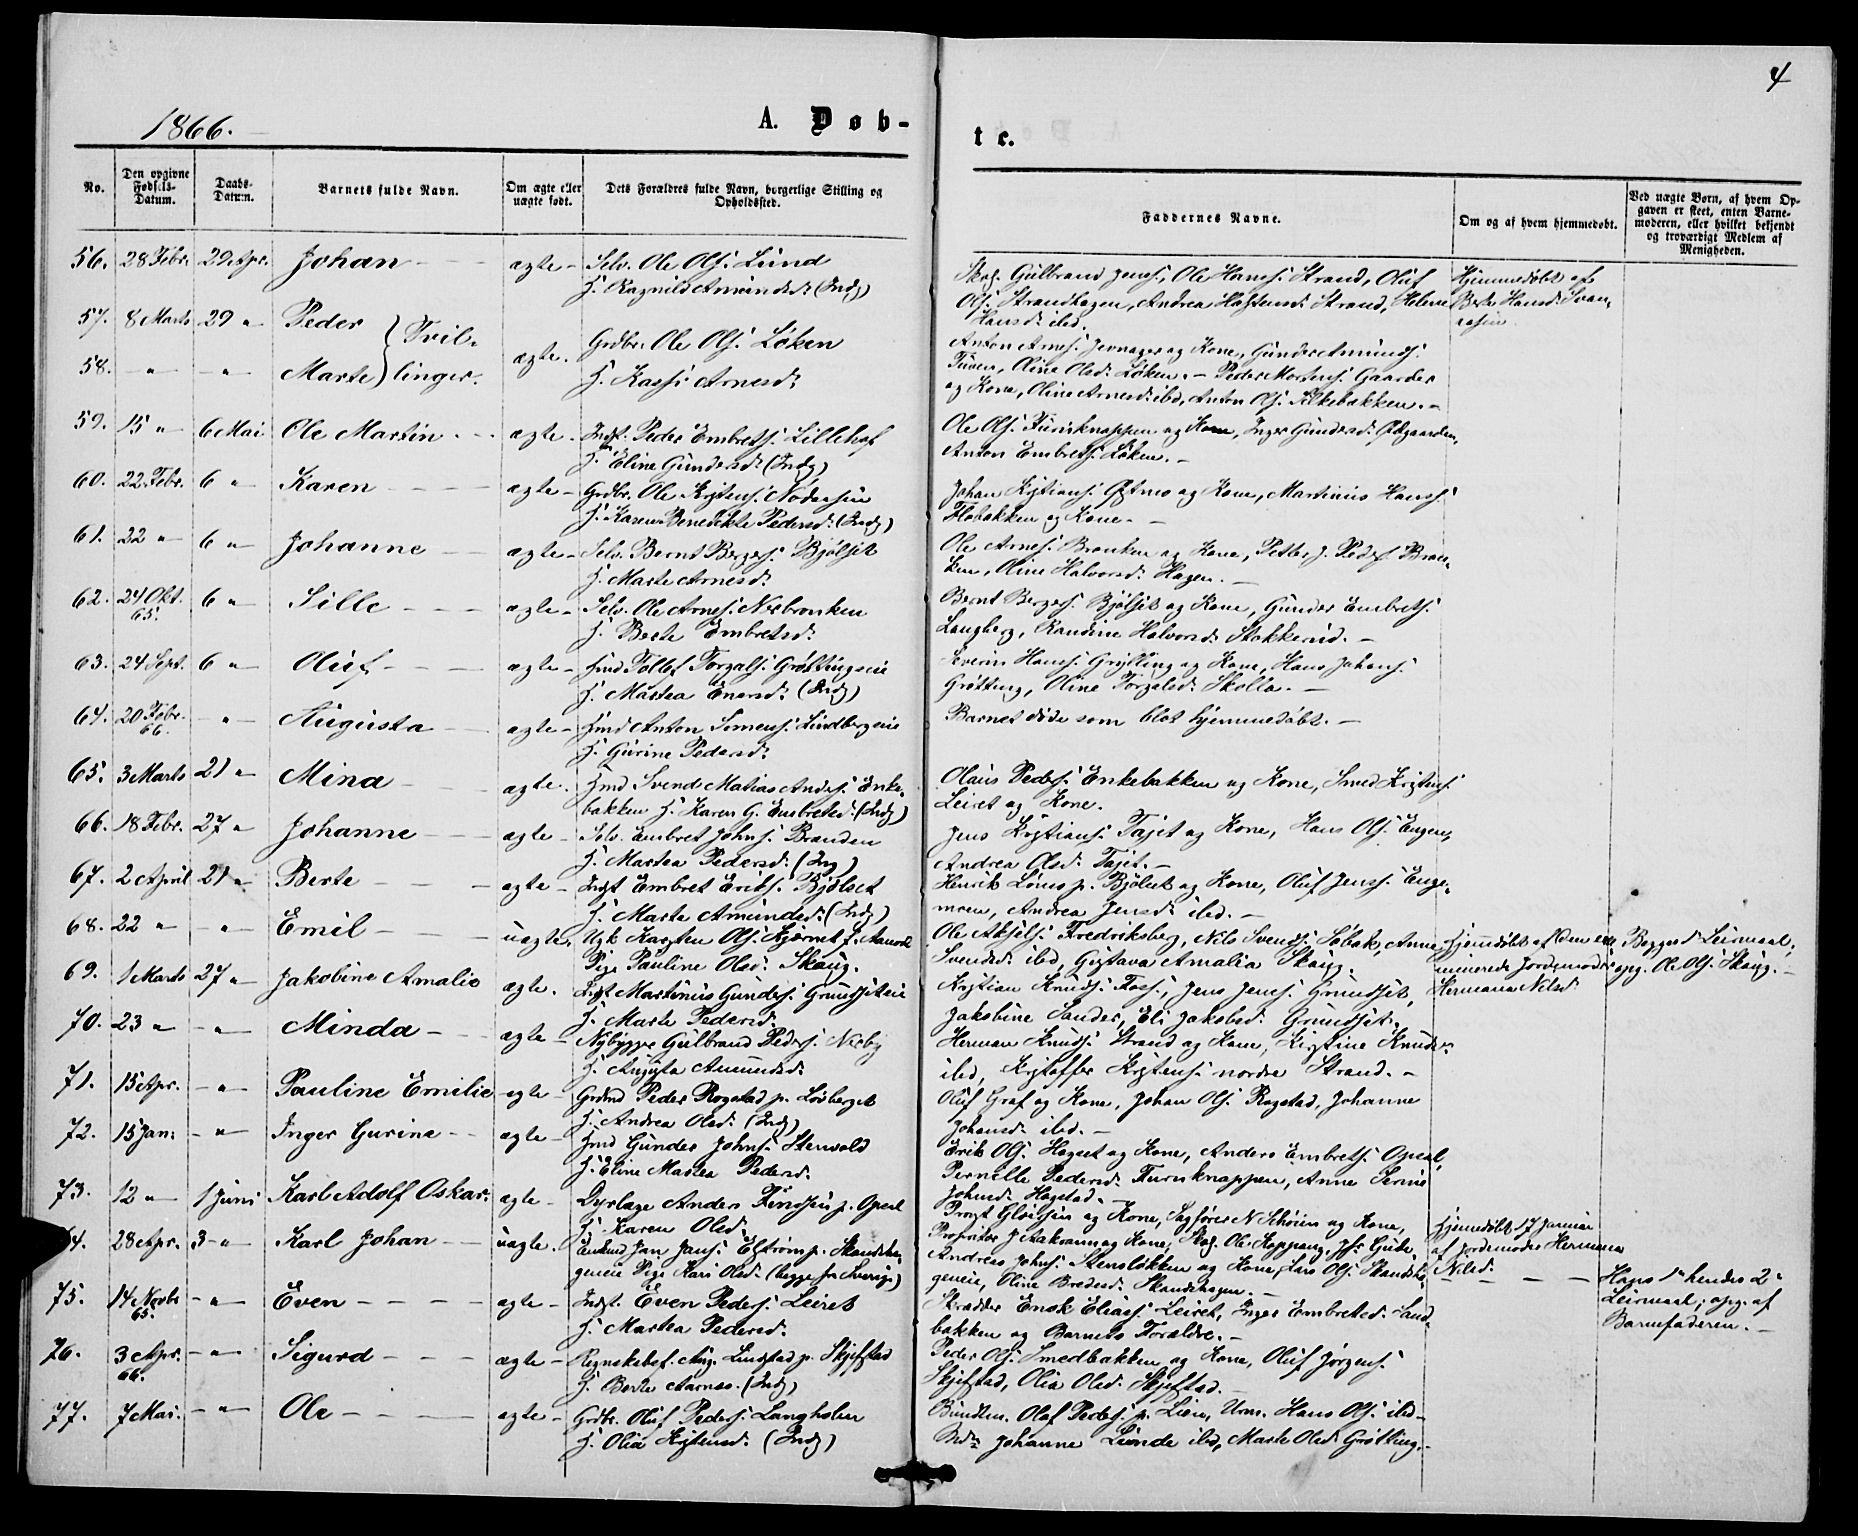 4
1866.
A. Døb-
te.
No.
Den opgivne Fødsels-Datum.
Daabs-Datum.
Barnets fulde Navn.
Om ægte eller uægte født.
Dets Forældres fulde Navn, borgerlige Stilling og Opholdssted.
Faddernes Navne.
Om og af hvem hjemmedøbt.
Ved uægte Børn, af hvem Opgaven er skeet, enten Barnemoderen, eller hvilket bekjendt og troværdigt Medlem af Menigheden.
56. 28 Febr. 29 Apr. Johan ægte Selv. Ole Ols. Lund
H. Ragnild Amundsd. (Indg)
Skog. Gulbrand Jens. Ole Hans. Strand, Oluf
Ols. Strandhagen, Andrea Strand, Helene
Hansd. ibd.
Hjemmedøbt af
Berte Hansd. Svan-
57. 8 Marts 29 " Peder } Tvil-
58. " " Marte } linger. ægte. Grdbr. Ole Ols. Løken
H. Arnesd.
Anton Arnes. og Kone, Gunder Amunds.
Oline Olsd. Løken. Peder Mortens. Gaarder
og Kone, Oline Arnesd. ibd, Anton Ols. Silkebakken.
59. 15 " 6 Mai Ole Martin ægte. Indst. Peder Embrets. Lillehof
H. Eline Gundersd. (Indg)
Ole Ols. Furuknappen og Kone, Inger Gundersd. Ødegaarden,
Anton Embrets. Løken.
60. 22 Febr. 6 " Karen ægte Grdbr. Ole Kristens.
H. Karen Benedikte Pedersd. (Indg)
Johan Kristians. Østmo og Kone, Martinus Hans.
Flobakken og Kone.
61. 22 " 6 " Johanne ægte Selv. Bernt Bergers. Bjølset
H. Marte Arnesd.
Ole Arnes. Bronken og Kone, Petter J. Peders. Bron-
ken, Oline Halvorsd. Hagen.
62. 24 Okt. 65. 6 " Sille ægte Selv. Ole Arnes. Nerbronken
H. Berte Embretsd.
Bernt Bergers. Bjølset og Kone, Gunder Embrets.
Langberg, Randine Halvorsd. Stakkerud.
63. 24 Sept. 6 " Oluf ægte Hmd Tollef Torgals. Grøttingseie
H. Martea Enersd. (Indg)
Severin Hans. Grytting og Kone, Hans Johans.
Grøtting, Oline Torgalsd. Skolla.
64. 20 Febr. 66. " Augusta ægte Hmd Anton Simens. Lindbergseie
H. Gurine Pedersd.
Barnet døde som blot hjemmedøbt.
65. 3 Marts 21 " Mina ægte. Hmd Svend Matias Anders. Enke-
bakken H. Karen G. Embretsd. (Indg)
Olaus Peders. Enkebakken og Kone, Smed Kristens.
Leiret og Kone.
66. 18 Febr. 27 " Johanne ægte Selv. Embret Johns. Branden
H. Martea Pedersd. (Ing)
Jens Kristians. Tajet og Kone, Hans Ols. Engen,
Andrea Olsd. Tajet.
67. 2 April 21 " Berte ægte Indst Embret Eriks. Bjølset
H. Marte Amundsd. (Indg)
Henrik p. Bjølset og Kone, Oluf Jens. Enge-
moen, Andrea Jensd. ibd.
68. 22 " " Emil uægte. Ugk Karsten Ols. Kjernet f. Aamodt
Pige Pauline Olsd. Skaug.
Ole Aksels. Fredriksberg, Nils Svends. Søbak, Anne
Svendsd. ibd, Gustava Amalia Skaug.
Hjemdøbt af den exa-
minerede Jordemoder
Hermana Nilsd.
Begges 1' Leiermaal,
opg. Ole Ols. Skaug.
69. 1 Marts 27 " Jakobine Amalie ægte. Indst Martinus Gunders. Grundseteie
H. Marte Pedersd.
Kristian Knuds. Foss, Jens Jens. Grundset,
Jakobine Sander, Eli Jakobsd. Grundset.
70. 23 " " Minda ægte Nybygger Gulbrand Peders. Nerby
H. Augusta Amundsd.
Herman Knuds. Strand og Kone, Kristine Knudsd.
ibd, Kristoffer Kristens. nordre Strand.
71. 15 Apr. " Pauline Emilie ægte Grdmd Peder Rogstad p. Løvberget
H. Andrea Olsd. (Indg)
Oluf Graf og Kone, Johan Ols. Rogstad, Johanne
Johansd. ibd.
72. 15 Jan. " Inger Gurine ægte Hmd Gunder Johns. Stenvold
H. Eline Martea Pedersd.
Erik Ols. Hagset og Kone, Anders Embrets. Opsal,
Pernille Pedersd. Furuknappen, Anne Serine
Johnsd. Hagstad.
73. 12 " 1 Juni Karl Adolf Oskar. ægte Dyrlæge Anders Findsen p. Opsal
H. Karen Olsd.
og Kone, Sagfører N Schøien og Kone,
Proprietær J Aakrann og Kone, Skog. Ole Koppang,
Hjemdøbt 17 Januar
af Jordemoder Hermana
Nilsd.
74. 28 Apr. 3 " Karl Johan uægte. Enkmd Jan Jans. Elstrøm p. Skandsha-
geneie Pige Kari Olsd. (begge fra Sverige)
Andreas Johns. Stensløkken og Kone, Lars Ols. Skandsha-
geneie, Oline Bredesd. Skandshagen.
Hans 1' hendes 2'
Leiermaal; opg. af
Barnefaderen.
75. 14 Novbr 65. " Even ægte Indst. Even Peders. Leiret
H. Martea Pedersd.
Skrædder Enok Elias. Leiret, Inger Embretsd. Sand-
bakken og Barnets Forældre.
76. 3 Apr. 66. " Sigurd ægte Regnskabsf. Aug. Lindstad p. Skjefstad
H. Berte Aarnes. (Indg)
Peder Ols. Smedbakken og Kone, Oluf Jørgens.
Skjefstad, Olia Olsd. Skjefstad.
77. 7 Mai. " Ole ægte Grdbr. Oluf Peders. Langholen
H. Olia Kristensd. (Indg)
Olaf Peders. p. Lien, Urm. Hans Ols. ibd
Johanne Lunde ibd, Marte Olsd. Grøtting.